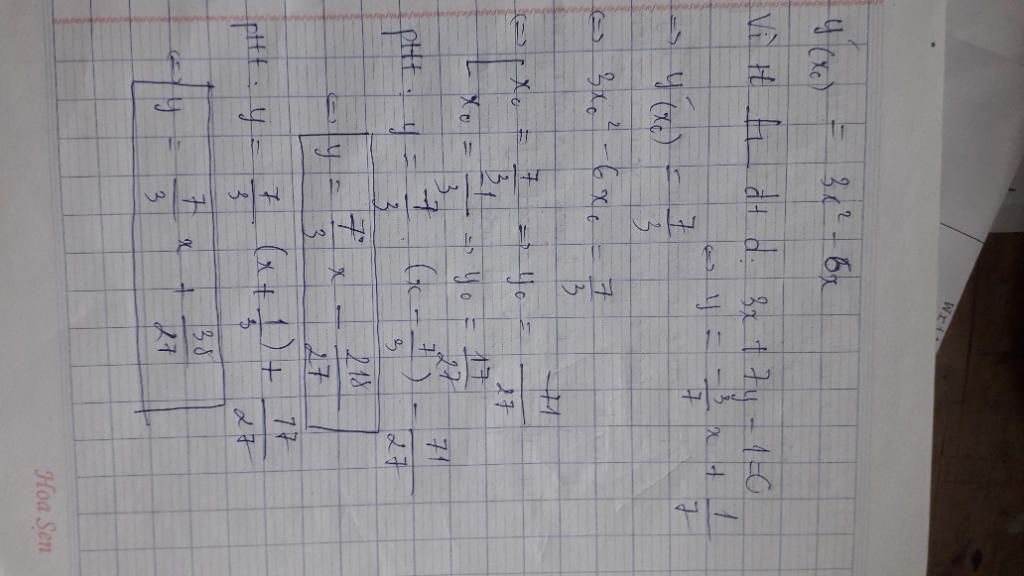 y'(x₀) = 3x² - 6x
Vì tt ⊥ đt d: 3x + 7y - 1 = 0
⇔ y = -3/7 x + 1/7
⇒ y'(x₀) = 7/3
⇔ 3x₀² - 6x₀ = 7/3
⇔ [ x₀ = 7/3 ⇒ y₀ = -71/27
x₀ = -1/3 ⇒ y₀ = 17/27
ptt: y = 7/3 (x - 7/3) - 71/27
⇔ y = 7/3 x - 218/27
ptt: y = 7/3 . (x + 1/3) + 17/27
⇔ y = 7/3 x + 38/27
Hoa Sen